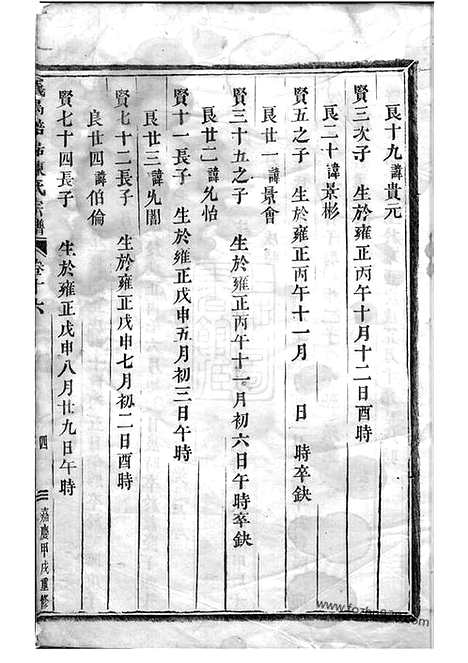 良十九諱貴元
賢三次子 生於雍正丙午十月十二日酉時
良二十諱景彬
賢五之子 生於雍正丙午十一月 日 時卒缺
良廿一諱景會
賢三十五之子 生於雍正丙午十一月初六日午時卒缺
良廿二諱允怡
賢十一長子 生於雍正戊申五月初三日午時
良廿三諱允闇
賢七十二長子 生於雍正戊申七月初二日酉時
良廿四諱伯倫
賢七十四長子 生於雍正戊申八月廿九日午時
陳氏宗譜 卷十六 四 嘉慶甲戌重修